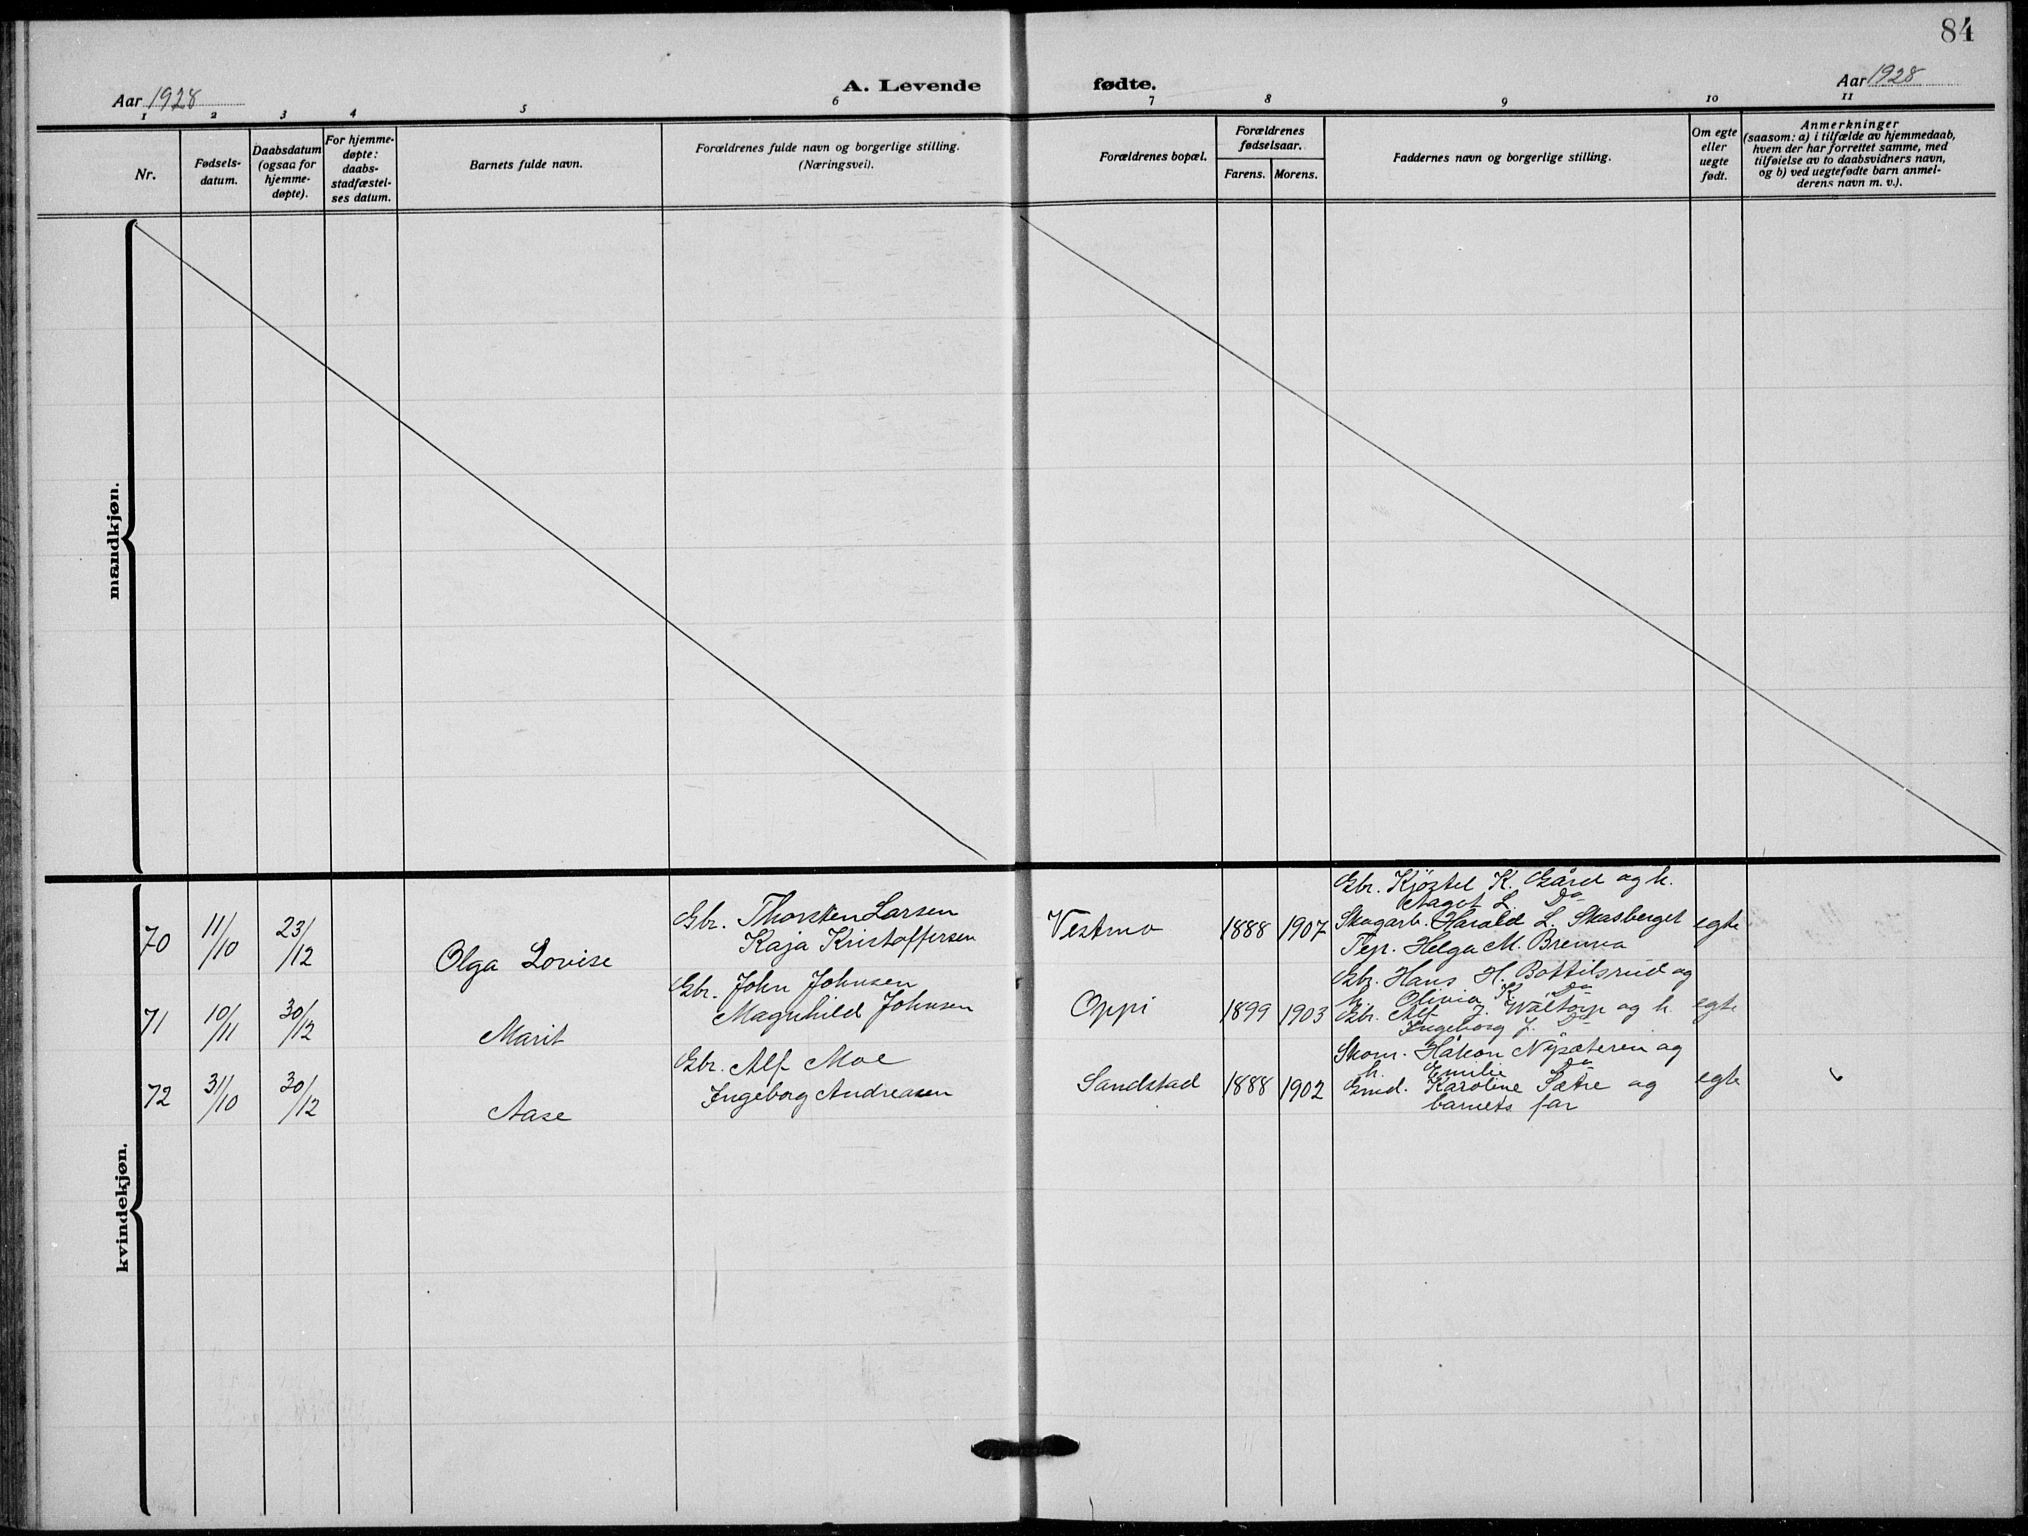 84
Aar 1928
A. Levende fødte.
Aar 1928
1 2 3 4 5 6 7 8 9 10 11
Nr.
Fødsels-
datum.
Daabsdatum
(ogsaa for
hjemme-
døpte).
For hjemme-
døpte:
daabs-
stadfæstel-
ses datum.
Barnets fulde navn.
Forældrenes fulde navn og borgerlige stilling.
(Næringsvei).
Forældrenes bopæl.
Forældrenes
fødselsaar.
Farens. Morens.
Faddernes navn og borgerlige stilling.
Om egte
eller
uegte
født.
Anmerkninger
(saasom: a) i tilfælde av hjemmedaab,
hvem der har forrettet samme, med
tilføielse av to daabsvidners navn,
og b) ved uegtefødte barn anmel-
derens navn m. v.).
mandkjøn.
kvindekjøn.
70
11/10
23/12
Olga Lovise
Gbr. Thorsten Larsen
Kaja Kristoffersen
Vestmo
1888 1907
Gbr. Kjøstel K. Gård og h.
Aagot L. Do
Skogarb. Harald L. Skasberget
Tep. Helga M. Brenna
egte
71
10/11
30/12
Marit
Gbr. John Johnsen
Magnhild Johnsen
Oppi
1899 1903
Gbr. Hans H. Bottilsrud og
h. Olivia K. Do
Gbr. Alf J. Waltorp og h.
Ingeborg J. Do
egte
72
31/10
30/12
Aase
Gbr. Alf Moe
Ingeborg Andreasen
Sandstad
1888 1902
Skom. Håkon Nysæteren og
h. Emilie Do
Gmd. Karoline Sætre og
barnets far
egte